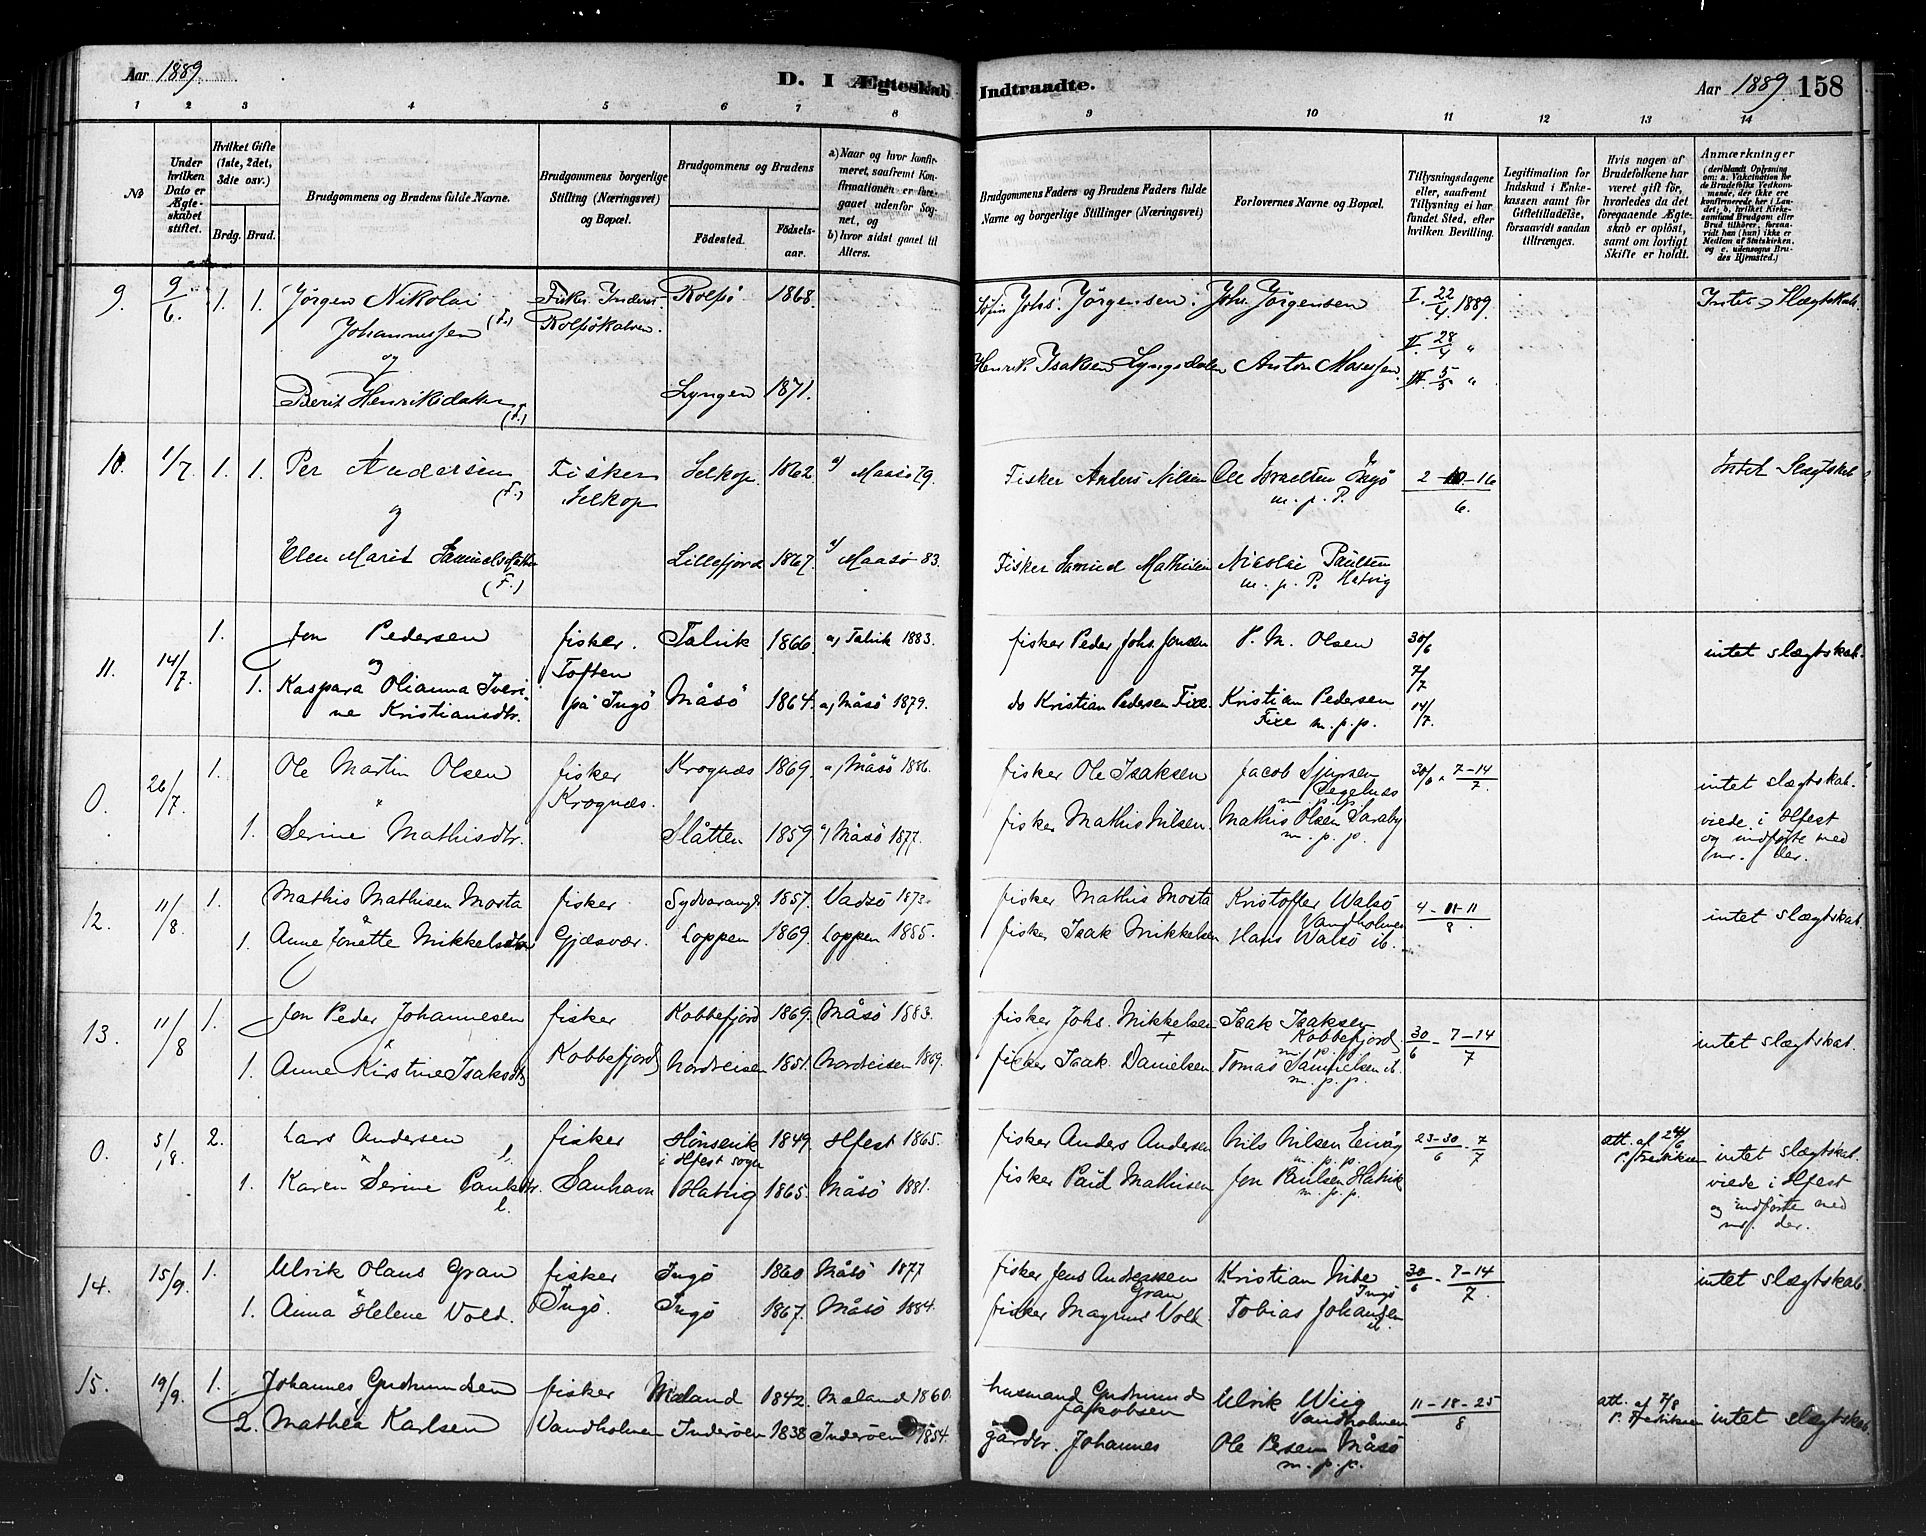 Aar 1889.
D. I Ægteskab Indtraadte.
Aar 1889. 158
1 2 3 4 5 6 7 8 9 10 11 12 13 14
No
Under hvilken Dato er Ægteskabet stiftet.
Hvilket Gifte (1ste, 2det, 3die osv.)
Brdg. Brud.
Brudgommens og Brudens fulde Navne.
Brudgommens borgerlige Stilling (Næringsvei) og Bopæl.
Brudgommens og Brudens
Fødested.
Fødselsaar.
a) Naar og hvor konfirmeret, saafremt Konfirmationen er foregaaet udenfor Sognet, og
b) hvor sidst gaaet til Alters.
Brudgommens Faders og Brudens Faders fulde Navne og borgerlige Stillinger (Næringsvei)
Forlovernes Navne og Bopæl.
Tillysningsdagene eller, saafremt Tillysning ei har fundet Sted, efter hvilken Bevilling.
Legitimation for Indskud i Enkekassen samt for Giftetilladelse, forsaavidt saadan tiltrænges.
Hvis nogen af Brudefolkene har været gift før, hvorledes da det foregaaende Ægteskab er opløst, samt om lovligt Skifte er holdt.
Anmærkninger
(deriblandt Oplysning om: a. Vakcination for de Brudefolks Vedkommende, der ikke ere konfirmerede her i Landet; b, hvilket Kirkesamfund Brudgom eller Brud tilhører, forsaavidt han (hun) ikke er Medlem af Statskirken, og c. udensogns Brudes Hjemsted.)
9. 9/6. 1. 1. Jørgen Nikolai Fisker Rolfsö 1868. Johs. Jörgensen. Johs. Jörgensen I. 22/4 1889. Intet Slægtskab.
Johannessen (F.) Rolfsökalven. II. 28/4 "
og Henrik Isaksen Lyngsdalen Anton Mosessen. III. 5/5 "
Berit Henriksdatter (F.) Lyngen 1871.
10. 1/7. 1. 1. Per Andersen (F.) Fisker Selkop. 1862. a) Maasö 79. Fisker Anders Nilsen Ole Israelsen Ingö 2-10-16 Intet Slægtskab
Selkop m. p. P. 6.
og
Elen Marit Samuelsdatter (F.) Lillefjord 1867. a) Maasö 83. Fisker Samuel Mathisen Nicolai Paulsen
m. p. P. Hatvig
11. 14/7. 1. Jon Pedersen fisker. Talvik 1866 a) Talvik 1883. fisker Peder Johs. Jensen P. M. Olsen 30/6 intet slægtskab.
og Toften 7/7
1. Kaspara Olianna Iverine Kristiansdtr. på Ingö Måsö 1864. a) Måsö 1879. do Kristian Pedersen Fixe. Kristian Pedersen 14/7.
Fixe m. p. p.
0. 26/7 1. Ole Martin Olsen fisker Krognæs 1869. a) Måsö 1886. fisker Ole Isaksen Jacob Sjursen 30/6 - 7-14/7. intet slægtskab.
" Krognæs. Segelnæs m. p. p.
1. Serine Mathisdtr. Slåtten 1859 a) Måsö 1877. fisker Mathis Nilsen. Mathis Olsen Saraby viede i Hfest
m. p. p. og indförte med nr. der.
12. 11/8 1. Mathis Mathisen Mosta fisker Sydvarang. 1857. Vadsö 1873. fisker Mathis Mosta Kristoffer Walsö 4-11-11/8 intet slægtskab.
Vandholmen
1. Anne Jonette Mikkelsdtr Gjæsvær. Loppen 1869. Loppen 1885. fisker Isak Mikkelsen Hans Walsö ib.
13. 11/8 1. Jon Peder Johannesen fisker Kobbefjord 1869. Måsö 1883. fisker Johs. Mikkelsen Isak Isaksen 30/6 - 7-14/7 intet slægtskab.
" Kobbefjord Kobbefjord m. p. p.
1. Anne Kirstine Isaksdtr Nordreisen 1851. Nordreisen 1869. fisker Isak Danielsen Tomas Samuelsen ib.
m. p. p.
0. 5/8. 2. Lars Andersen l. fisker Hönsevik 1849. Hfest 1865. fisker Anders Andersen Nils Nilsen 23-30/6 - 7/7 att. af 24/6 intet slægtskab.
i Hfest sogn m. p. p. P. Fredriksen
1. Karen Serine Paulsdtr. l. Sanhavn Hatvig 1865. Måsö 1881. fisker Paul Mathisen Jon Paulsen Hatvik viede i Hfest
m. p. p. og indförte med nr. der.
14. 15/9. 1. Ulrik Olaus Gran fisker Ingö 1860 Måsö 1877 fisker Jens Anderssen Gran Kristian Mibe Ingö 30/6 - 7-14/7. intet slægtskab.
1. Anna Helene Vold. Ingö. Ingö 1867. Måsö 1884. fisker Magnus Vold Tobias Johansen ib.
15. 19/9. 1. Johannes Gudmundsen fisker Meland 1842. Meland 1860. husmand Gudmund Jakobsen Ulrik Wiig 11-18-25/8 att. af 7/8 intet slægtskab.
Vandholmen P. Fredriksen
2. Mathea Karlsen Vandholmen Inderöen 1838 Inderöen 1854. gårdbr. Johannes Ole Pesen Måsö
m. p. p.